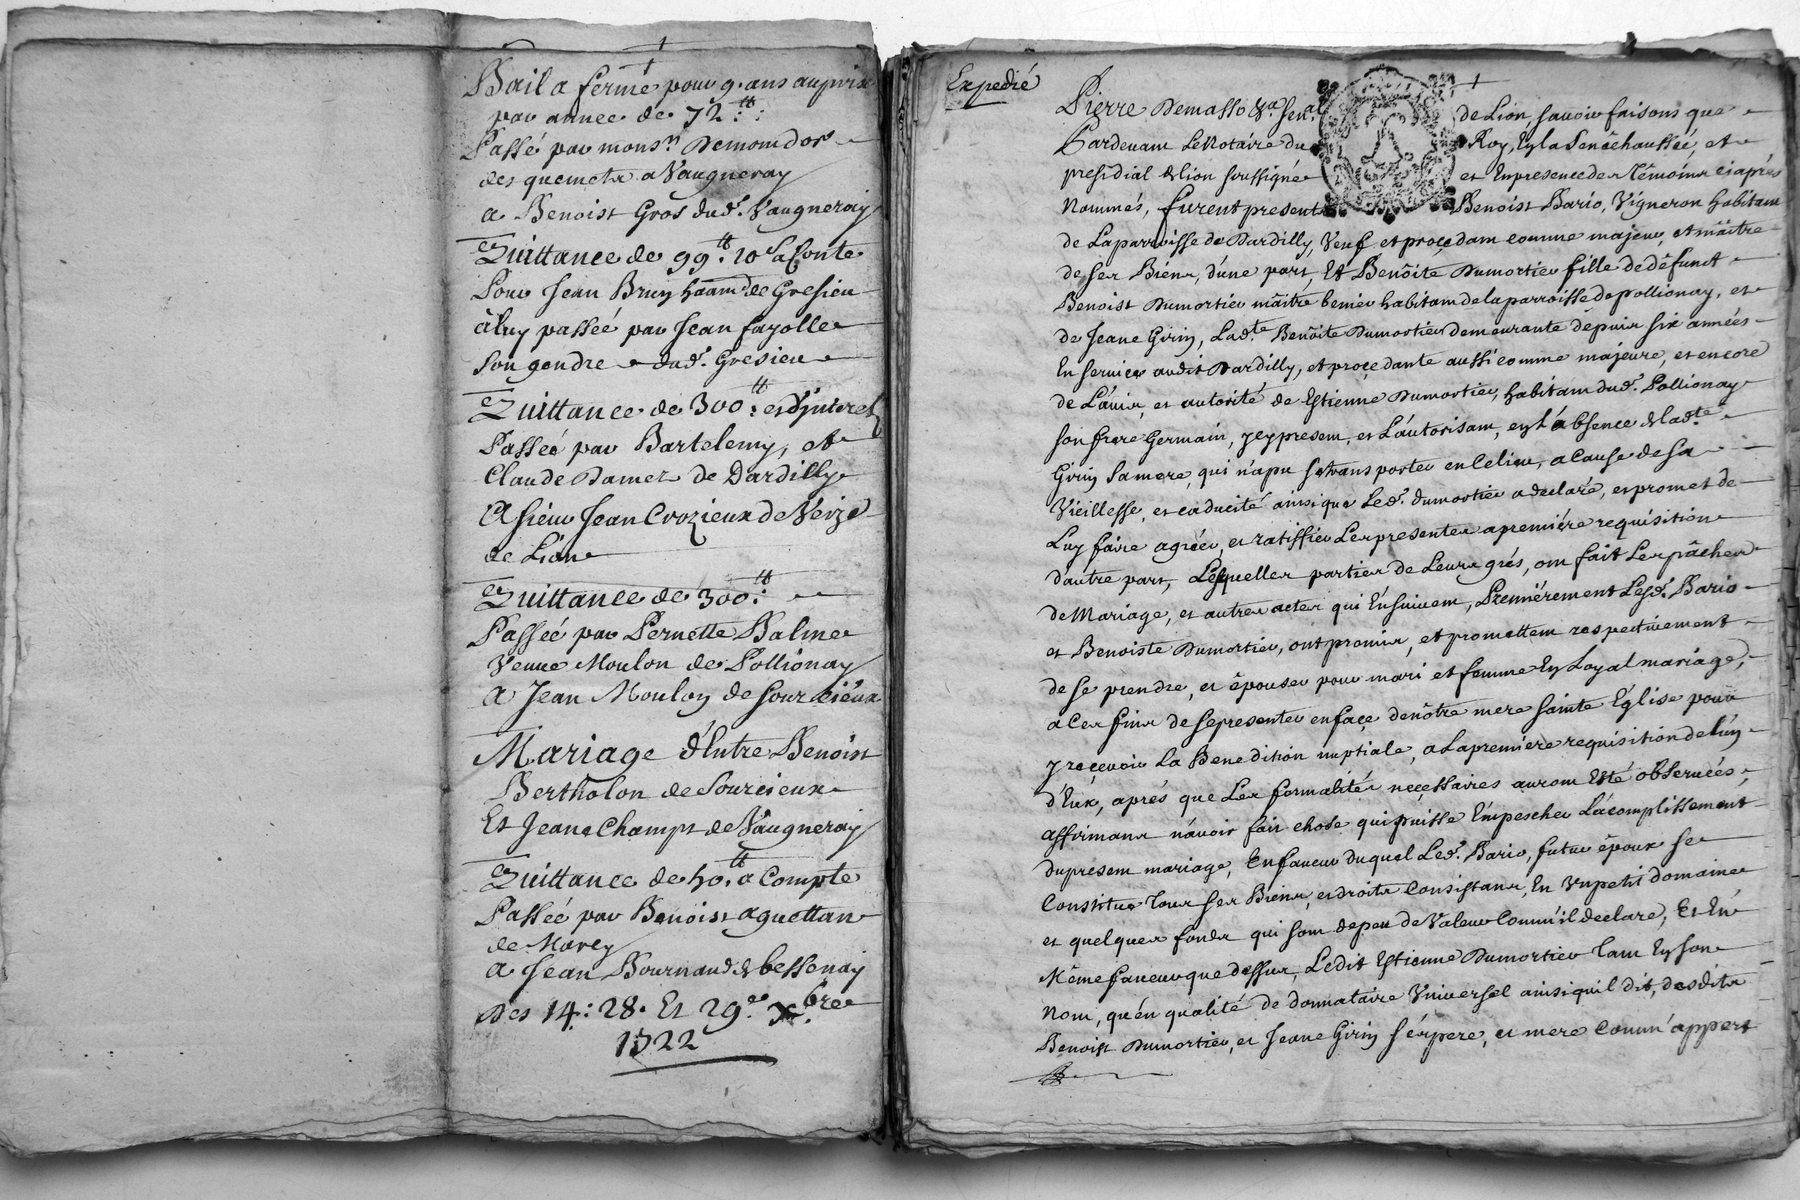 Bail a ferme pour 9. ans au prix
par annee de 72 ₶:
Passé par monsr. Demomdor
des quemetz a Vaugneray
a Benoist Gros dud. Vaugneray
Quittance de 99 ₶. 10 s a Conte
Pour Jean Bruy habitant de Gresieu
à luy passéé par Jean fayolle
son gendre dud. Gresieu
Quittance de 300 ₶: et d'jnterets
Passéé par Bartelemy, et
Claude Damez de Dardilly
A sieur Jean Crozieux de Veize
de Lion
Quittance de 300 ₶:
Passéé par Pernette Balme
Veuve Moulon de Pollionay
A Jean Moulon de Sourcieux
Mariage d'Entre Benoist
Bertholon de Sourcieux
Et Jeane Champt de Vaugneray
Quittance de 40 ₶. a Compte
Passéé par Benoist aguettan
de Marcy
a Jean Bournaud de bessenay
Des 14: 28. Et 29e. Xbre
1722
Expedié
Pierre Demasso de Lion savoir faisons que
Pardevant Le Notaire du Roy, En la Senéchaussée, et
presidial de lion soussigné et En presence des Témoins ci aprés
Nommés, furent presents Benoist Bario, Vigneron habitant
de La parroisse de Dardilly, Veuf et procedant comme majeur, et maître
de ses Biens, d'une part, Et Benôite Dumortier fille de défunct
Benoist Dumortier maître benier habitant de la parroisse de pollionay, et
de Jeane Girin, Ladte. Benôite Dumortier demeurante dépuis six années
En service audit Dardilly, et procedante aussi comme majeure, et encore
de L'avis, et autorité de Estienne Dumortier, habitant dud. Pollionay
son frere Germain, jcy present, et L'autorisant, en L'absence de ladte.
Girin sa mere, qui n'a pu se transporter en ce lieu, a cause de sa
Vieillesse, et caducité ainsi que Led. dumortier a declaré, et promet de
Luy faire agréer, et ratiffier Les presentes a premiére requisition
d'autre part, Lesquelles parties de Leurs grés, ont fait Les pâches
de Mariage, et autres actes qui Ensuivent, Premiérement Lesd. Bario
et Benoiste Dumortier, ont promis, et promettent respectivement
de se prendre, et épouser pour mari et femme En Loyal mariage,
a Ces fins de se presenter en façe de nôtre mere sainte Église pour
y reçevoir La Benedition nuptiale, a La premiere requisition de l'un
d'Eux, aprés que Les formalités neçessaires auront Eté observées,
affirmans n'avoir fait chose qui puisse Empescher L'acomplissement
du present mariage, En faveur duquel Led. Bario, futur époux se
Constitue Tous ses Biens, et droits Consistans, En Un petit domaine
et quelques fonds qui sont de peu de Valeur Comm'il declare, Et En
Même faveur que dessus, Ledit Estienne Dumortier Tant En son
Nom, qu'én qualité de donnataire Universel ainsi qu'il dit, desdits
Benoist Dumortier, et Jeane Girin ses pere, et mere Comm'appert